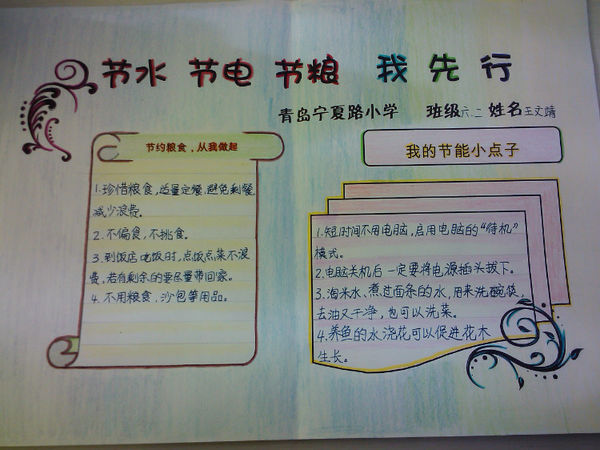 节水 节电 节粮 我先行
青岛宁夏路小学 班级六.二 姓名王文靖
节约粮食，从我做起
1.珍惜粮食,适量定餐,避免剩餐,
减少浪费。
2.不偏食,不挑食。
3.到饭店吃饭时,点饭点菜不浪
费,若有剩余的要尽量带回家。
4.不用粮食,沙包等用品。
我的节能小点子
1.短时间不用电脑,启用电脑的“待机”
模式。
2.电脑关机后一定要将电源插头拔下。
3.淘米水、煮过面条的水,用来洗碗筷,
去油又干净,也可以洗菜。
4.养鱼的水浇花可以促进花木
生长。